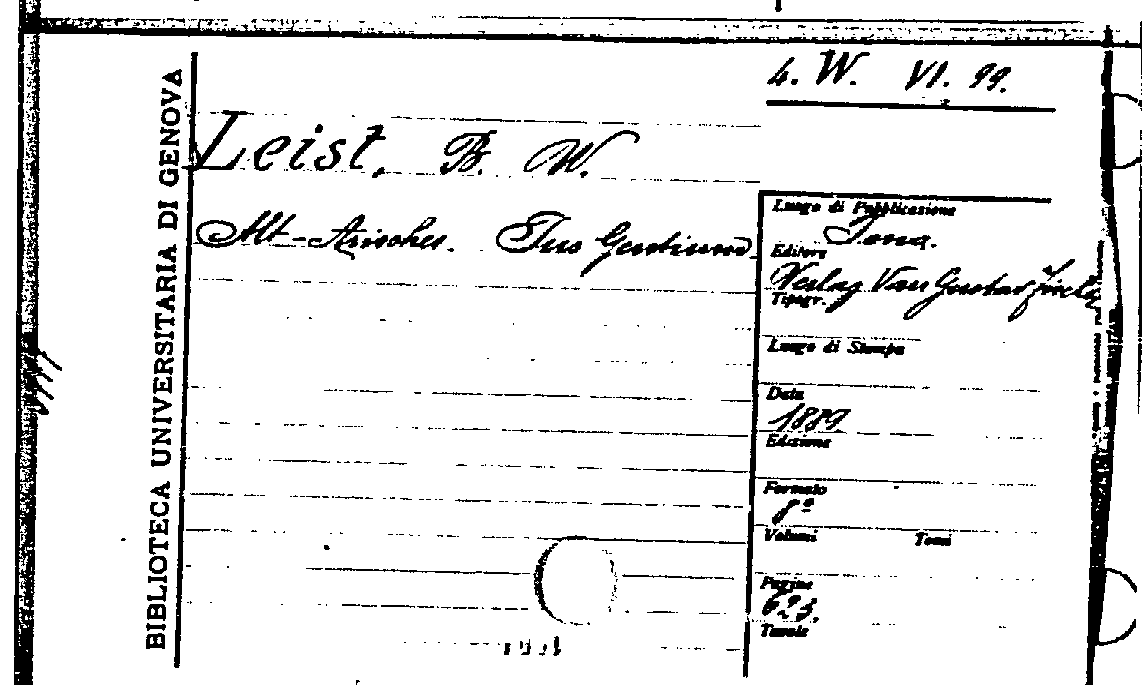 4. W. VI. 99.
BIBLIOTECA UNIVERSITARIA DI GENOVA
Leist, B. W.
Alt-Arisches. Jus Gentium
Luogo di Pubblicazione
Jena.
Editore
Verlag Van Gustav
Tipogr.
Luogo di Stampa
Data
1889
Edizione
Formato
8º
Volumi Tomi
Pagine
623.
Tavole